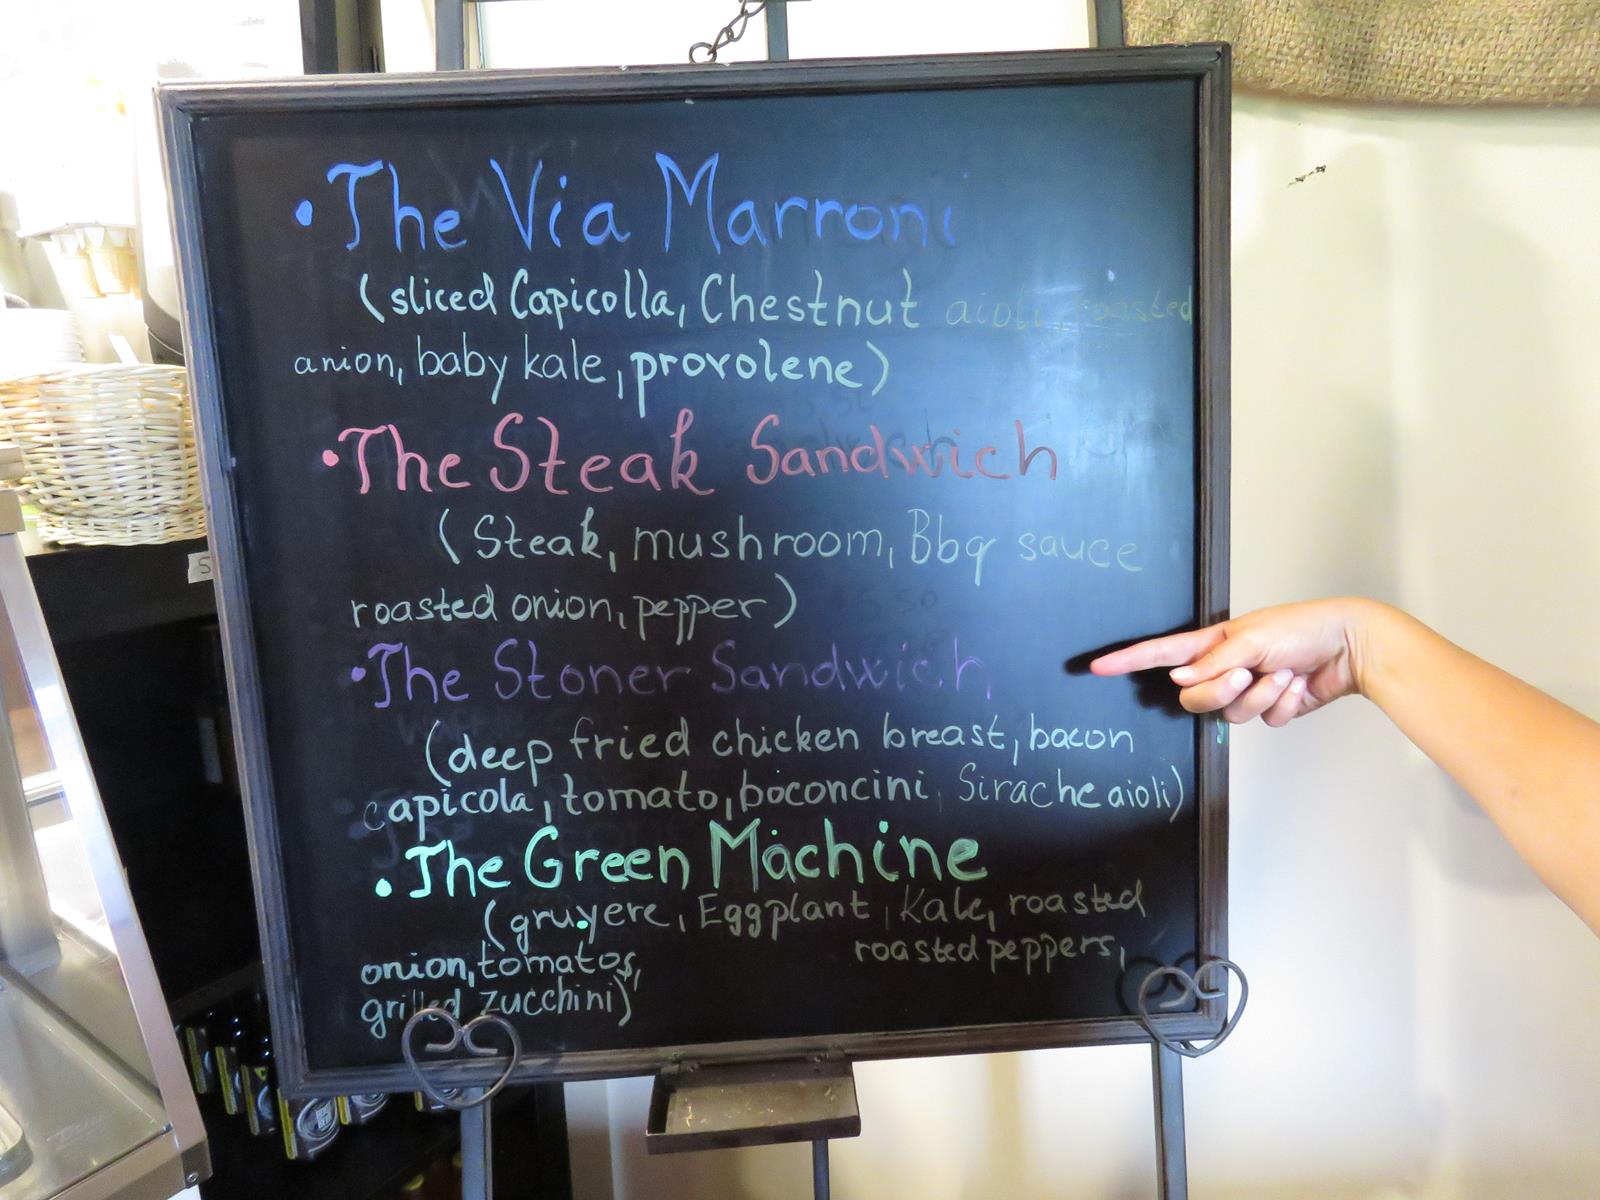 • The Via Marroni
(sliced Capicolla, Chestnut aioli, roasted
anion, baby kale, provolene)
• The Steak Sandwich
(Steak, mushroom, Bbq sauce
roasted onion, pepper)
• The Stoner Sandwich
(deep fried chicken breast, bacon
capicola, tomato, boconcini, Sirache aioli)
• The Green Machine
(gruyere, Eggplant, Kale, roasted
roasted peppers,
onion, tomatos,
grilled zucchini)